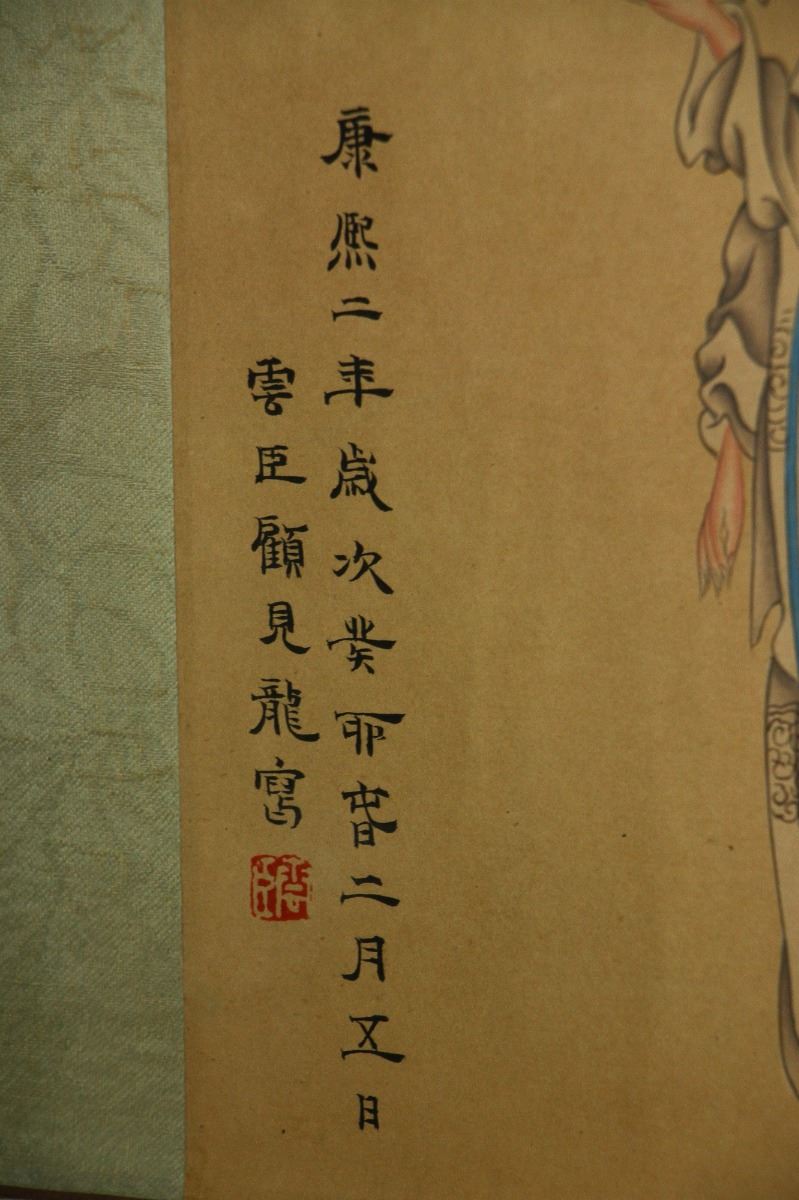 康熙二年歲次癸卯春二月五日
雲臣顧見龍寫